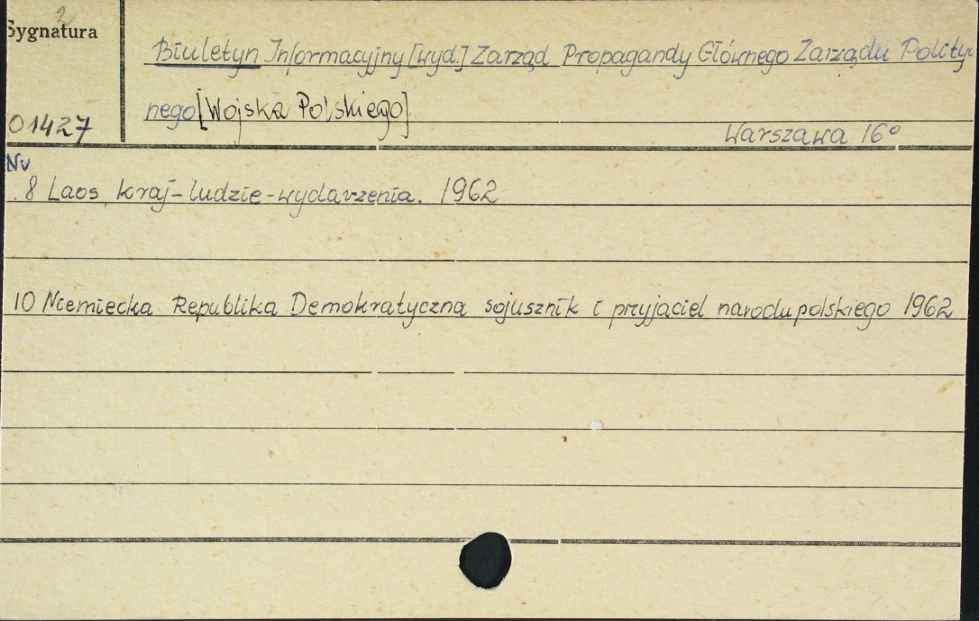 2
Sygnatura
Biuletyn Informacyjny [wyd.] Zarząd Propagandy Głównego Zarządu Polity
nego [Wojska Polskiego]
01427
Warszawa 16°
Nr
8 Laos, kraj-ludzie-wydarzenia. 1962
10 Niemiecka Republika Demokratyczna sojusznik i przyjaciel narodu polskiego 1962